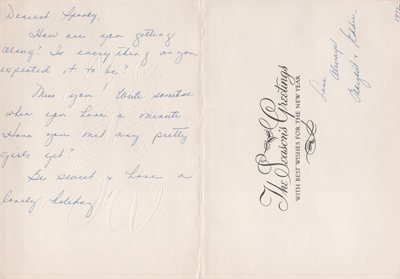 Dearest Spooky.
How are you getting
along? Is everything as you
expected it to be?
Miss you! Write sometime
when you have a minute.
Have you met any pretty
girls yet?
Be sweet & have a
lovely holiday!
The Season's Greetings
WITH BEST WISHES FOR THE NEW YEAR
Love Always
&